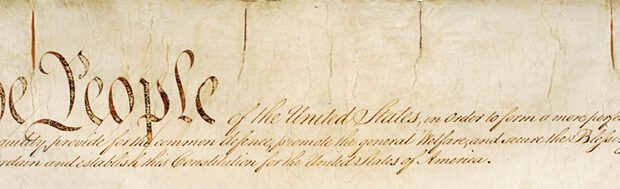 he People of the United States, in Order to form a more perfe
quility, provide for the common defence, promote the general Welfare, and secure the Blessin
rdain and establish this Constitution for the United States of America.